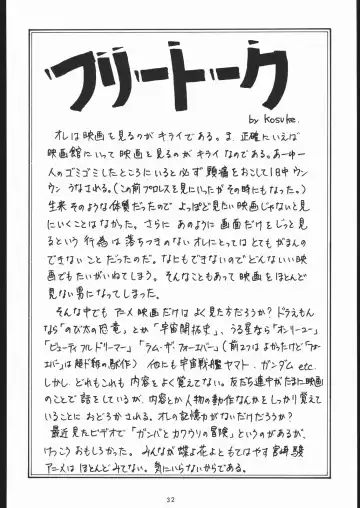 フリートーク
by kosuke.
オレは映画を見るのがキライである。ま、正確にいえば
映画館にいって映画を見るのがキライなのである。あーゆー
人のゴミゴミしたところにいると必ず頭痛をおこして1日中ウン
ウンうなされる。(この前プロレスを見にいったがその時にもなった。)
生来そのような体質だったのでよっぽど見たい映画じゃないと見
にいくことはなかった。さらにあのように画面だけをじっと見
るという行為は落ちつきのないオレにとってはとてもがまんの
できないことだったのだ。なにもできないのでどんないい映
画でもたいがいねてしまう。そんなこともあって映画をほとんど
見ない男になってしまった。
そんな中でもアニメ映画だけはよく見た方だろうか?ドラえもん
なら「のび太の恐竜」とか「宇宙開拓史」、うる星なら「オンリーユー」
「ビューティフルドリーマー」「ラム・ザ・フォーエバー」(前2つはよかったけど「フォー
エバー」は超ド級の駄作)他にも宇宙戦艦ヤマト、ガンダム etc.
しかし、どれもこれも内容をよく覚えてない。友だち連中がたまに映画
のことで話をしているが、内容とか人物の動作なんかをしっかり覚えて
いることにおどろかされる。オレの記憶力がないだけだろうか?
最近見たビデオで「ガンバとカワウソの冒険」というのがあるが、
けっこうおもしろかった。みんなが蝶よ花よともてはやす宮崎駿
アニメはほとんどみてない。気にいらないからである。
32